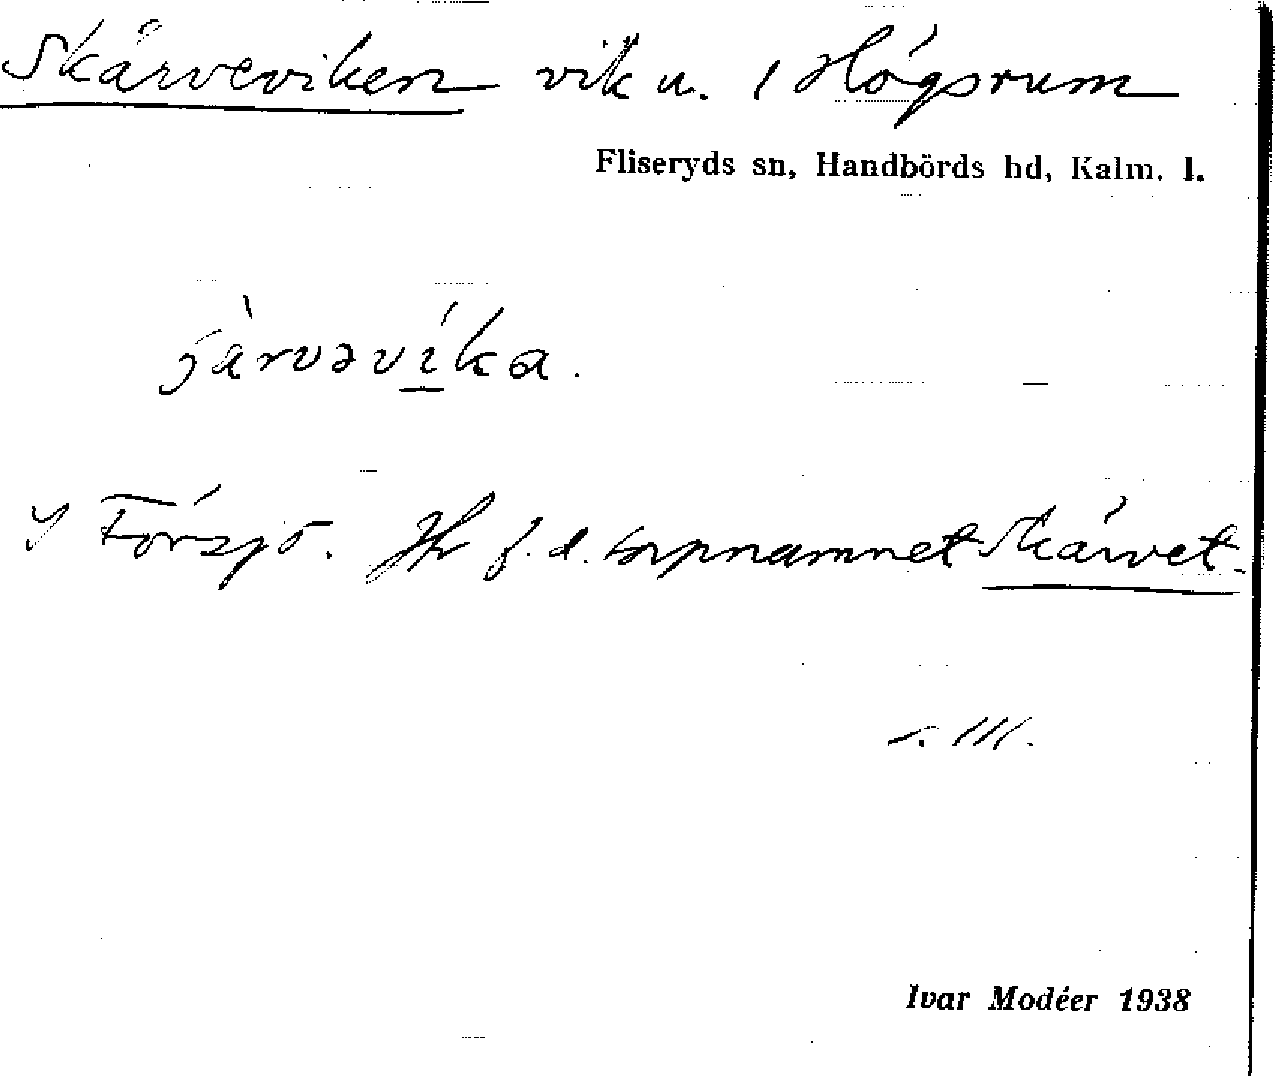 Skärveviken vik u. 1 Högsrum
Fliseryds sn, Handbörds hd, Kalm. l.
Försjö. Jfr f. d. torpnamnet Skärvet.
Ivar Modéer 1938